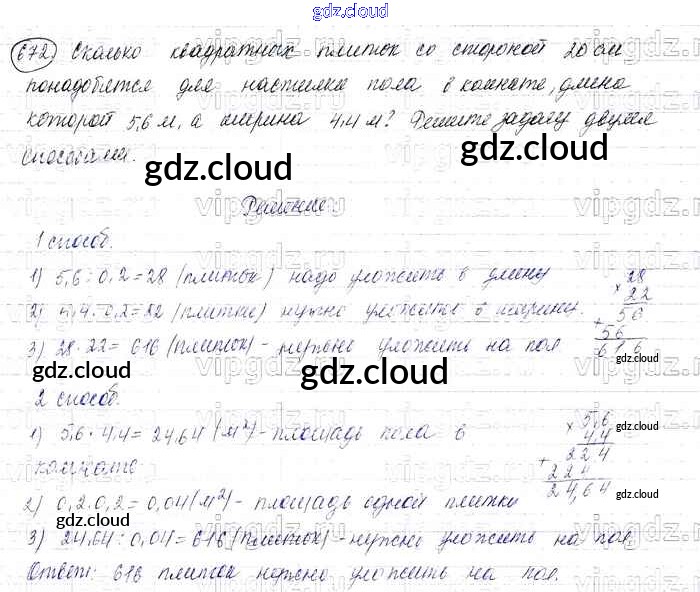 gdz.cloud
672) Сколько квадратных плиток со стороной 20 см
понадобится для настилки пола в комнате, длина
которой 5,6 м, а ширина 4,4 м? Решите задачу двумя
способами.
gdz.cloud
Решение:
1 способ.
1) 5,6 : 0,2 = 28 (плиток) надо уложить в длину
2) 4,4 : 0,2 = 22 (плитки) нужно уложить в ширину.
3) 28 · 22 = 616 (плиток) - нужно уложить на пол
× 28
22
56
+ 56
616
gdz.cloud
gdz.cloud
gdz.cloud
2 способ.
1) 5,6 · 4,4 = 24,64 (м²) - площадь пола в
комнате
× 5,6
4,4
224
+ 224
24,64
gdz.cloud
gdz.cloud
2) 0,2 · 0,2 = 0,04 (м²) - площадь одной плитки
gdz.cloud
3) 24,64 : 0,04 = 616 (плиток) - нужно уложить на пол
Ответ: 616 плиток нужно уложить на пол.